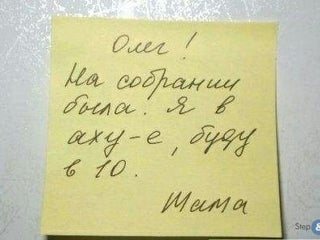 Олег!
На собрании
была. Я в
аху-е, буду
в 10.
Мама
Step